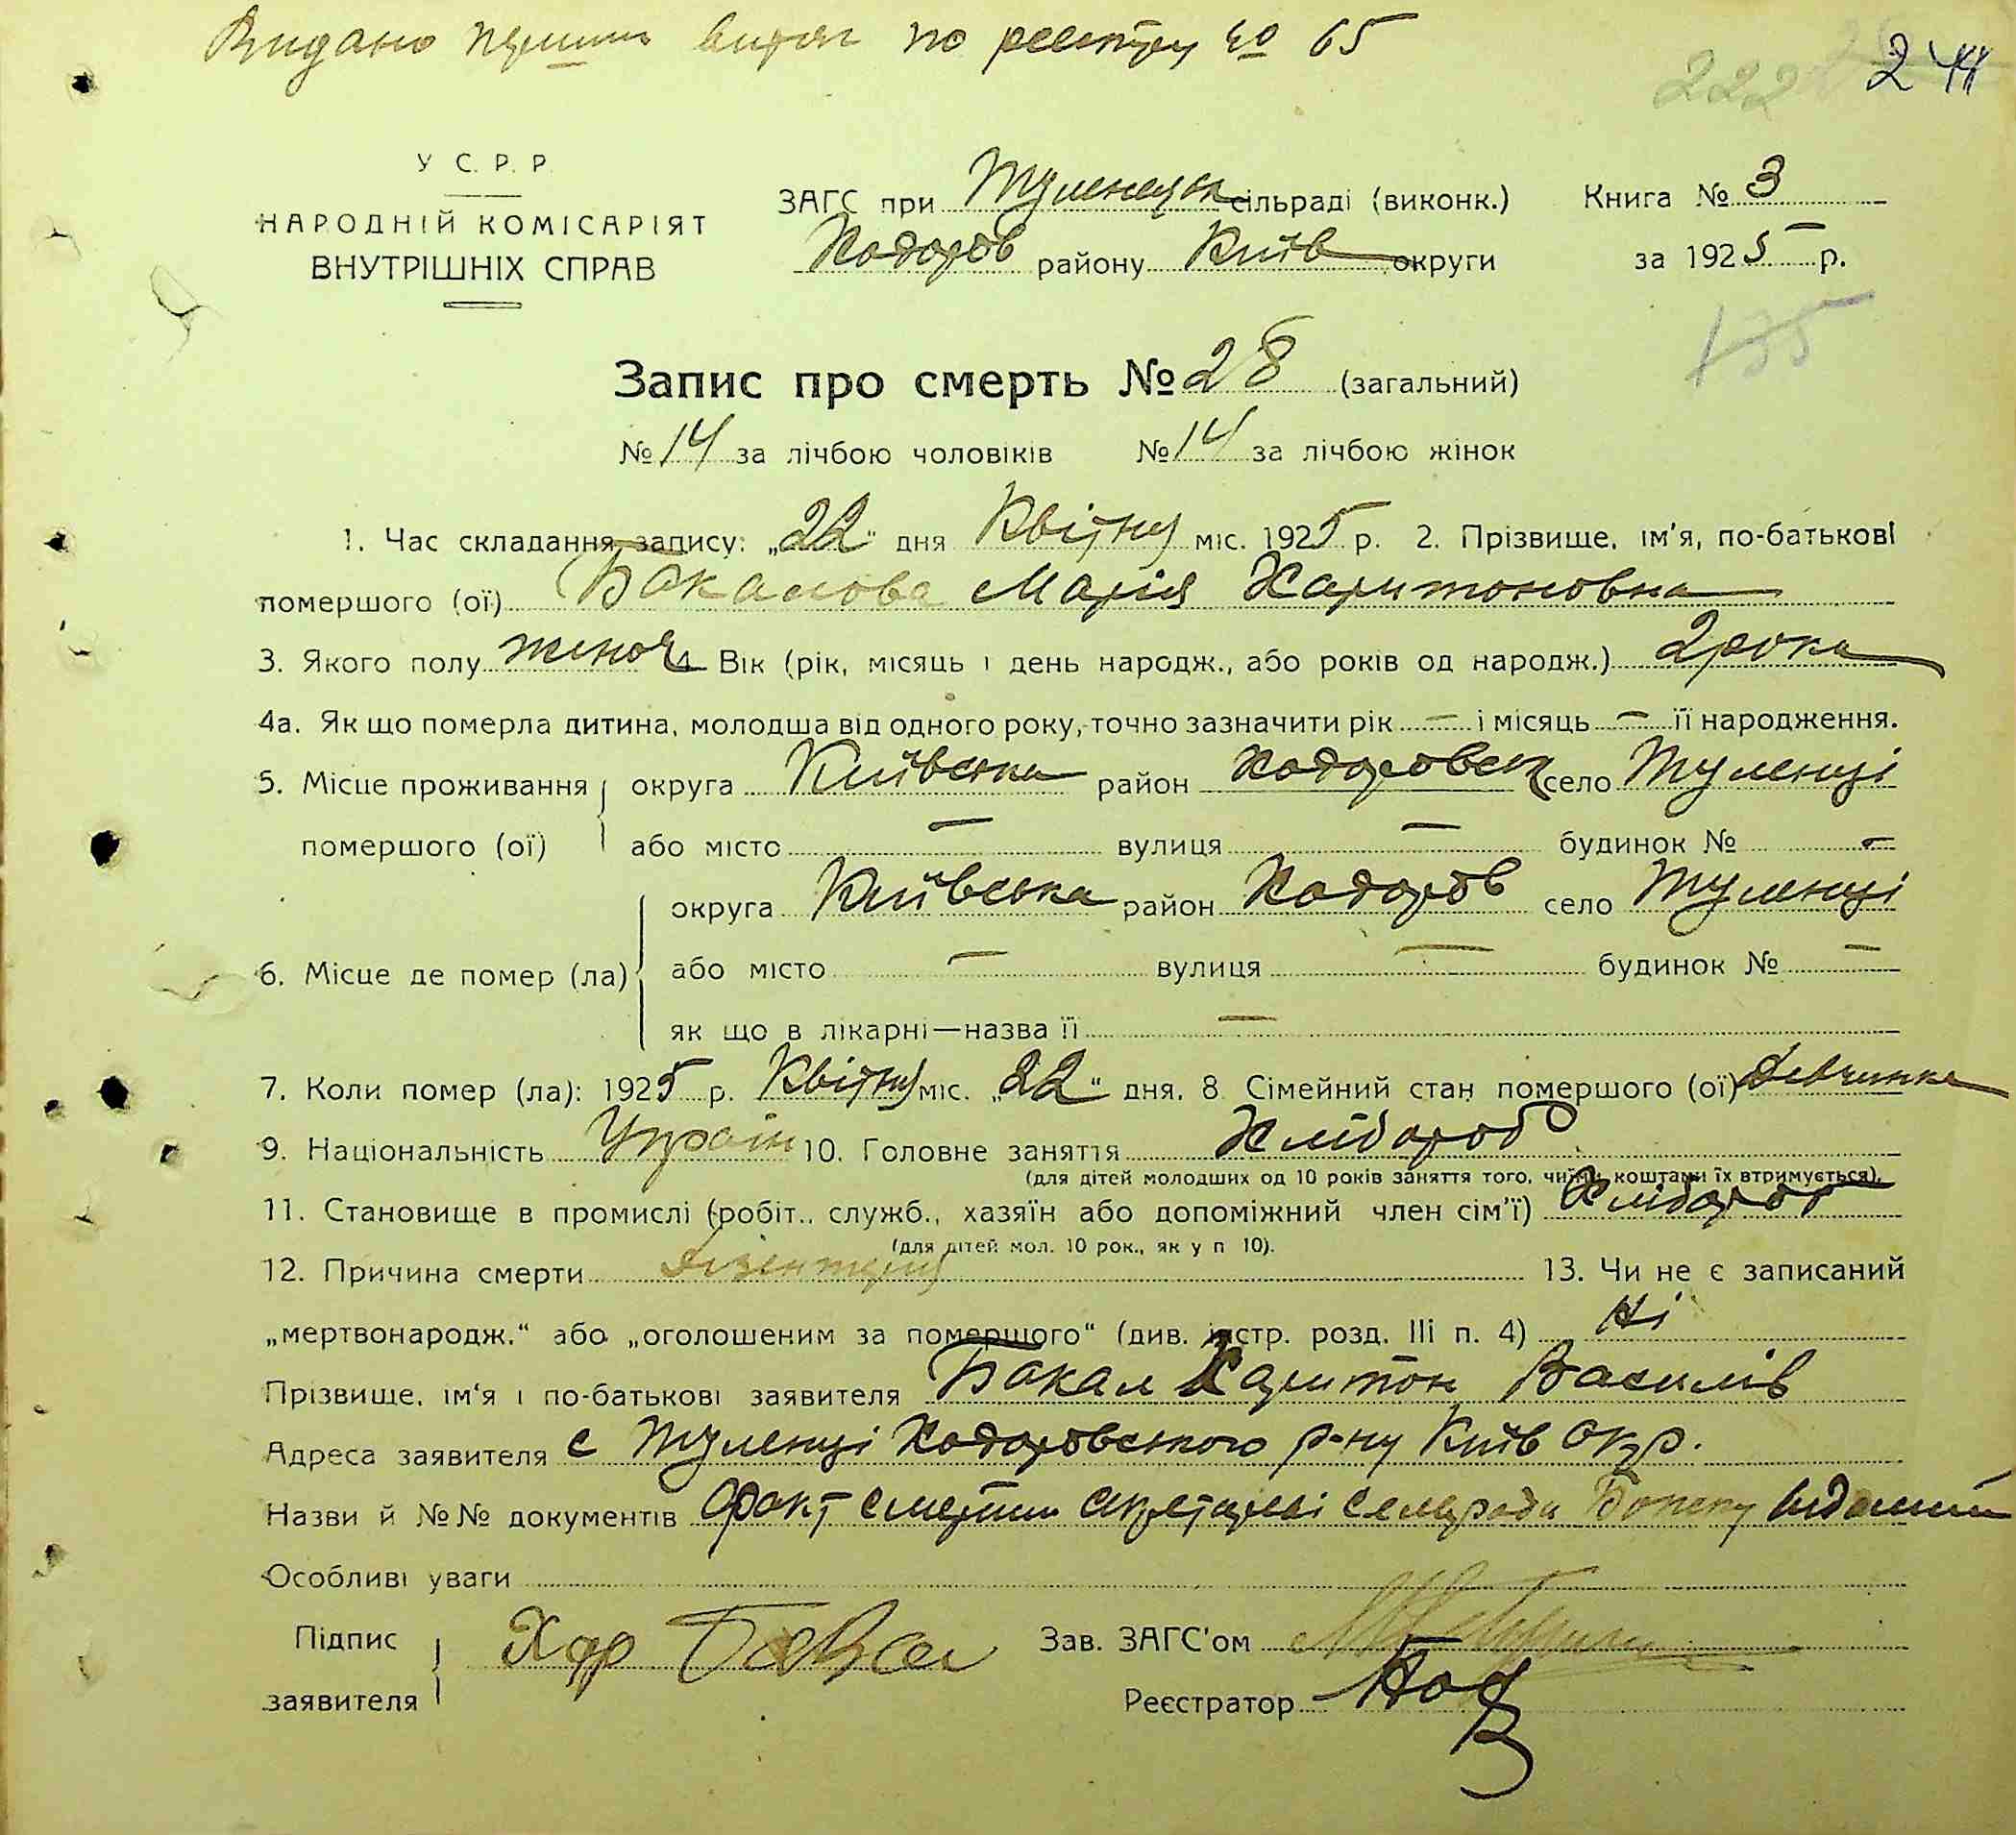 Видано перший витяг по реєстру № 65
222 244
У С. Р. Р.
НАРОДНІЙ КОМІСАРІЯТ
ВНУТРІШНІХ СПРАВ
ЗАГС при Туленецк сільраді (виконк.) Книга № 3
Ходоров району Київ округи за 1925 р.
135
Запис про смерть № 28 (загальний)
№ 14 за лічбою чоловіків № 14 за лічбою жінок
1. Час складання запису: „22“ дня Квітну міс. 1925 р. 2. Прізвище, ім'я, по-батькові
помершого (ої) Бакалова Марія Харитоновна
3. Якого полу жіноч 4 Вік (рік, місяць і день народж., або років од народж.) 2 рока
4а. Як що померла дитина, молодша від одного року, точно зазначити рік — і місяць — її народження.
5. Місце проживання округа Київська район Ходоровск село Туленці
помершого (ої) або місто — вулиця — будинок № —
округа Київська район Ходоров село Туленці
6. Місце де помер (ла) або місто — вулиця — будинок № —
як що в лікарні—назва її —
7. Коли помер (ла): 1925 р. Квітну міс. „22“ дня. 8 Сімейний стан помершого (ої) Девчинка
9. Національність Україн 10. Головне заняття Хлібороб
(для дітей молодших од 10 років заняття того, чиїми коштами їх втримується).
11. Становище в промислі (робіт., служб., хазяїн або допоміжний член сім'ї) Хлібороб
(для дітей мол. 10 рок., як у п 10).
12. Причина смерти Дізентерия 13. Чи не є записаний
„мертвонародж.“ або „оголошеним за помершого“ (див. інстр. розд. III п. 4) Ні
Прізвище, ім'я і по-батькові заявителя Бакал Харитон Василів
Адреса заявителя с Туленці Ходоровського р-ну Київ Окр.
Назви й №№ документів Факт смерти секретареві сельради відомий
Особливі уваги
Підпис Хар Бакал Зав. ЗАГС'ом
заявителя Реєстратор